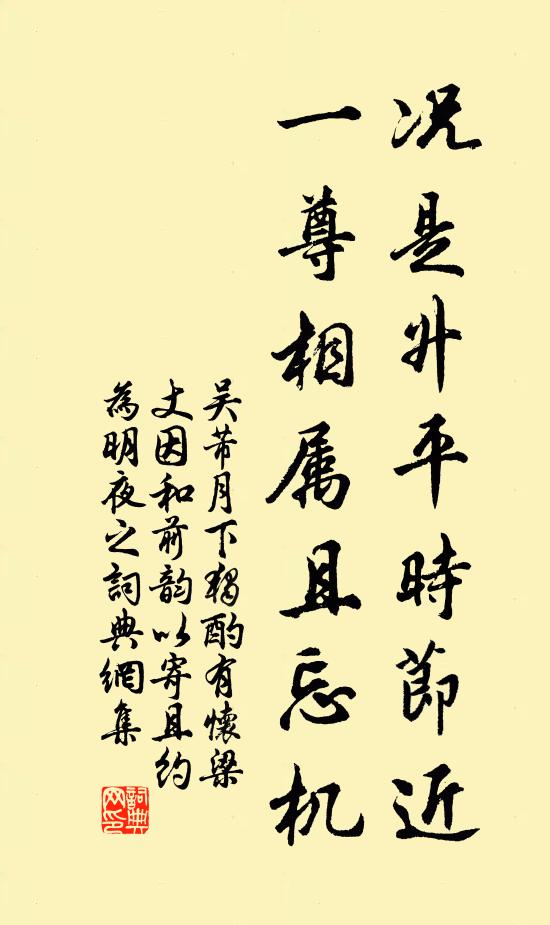 况是升平時節近
一尊相属且忘机
吴芾月下獨酌有懷梁
丈因和前韵以寄且约
為明夜之詞典網集
詞典網印